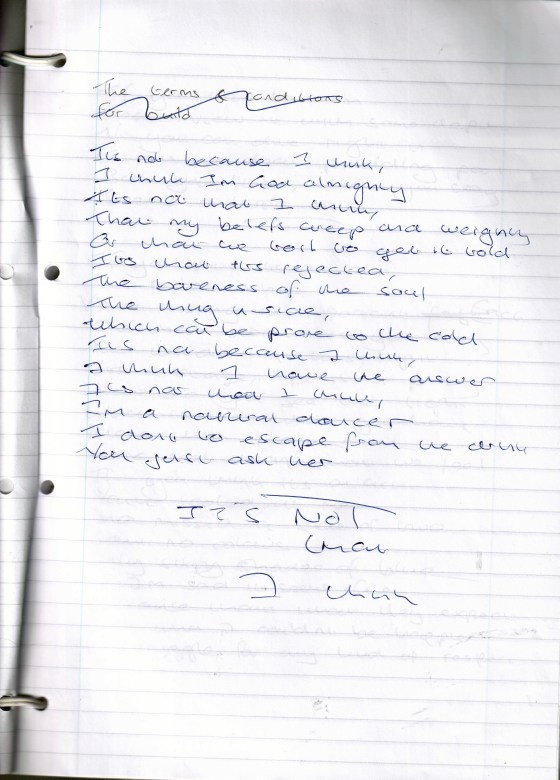 The terms & conditions
For build
Its not because I think,
I think Im God almighty
Its not that I think,
That my beliefs creep and weighty
Or that we toil to get it told
Its that its rejected,
The bareness of the soul
The thing inside,
Which can be prone to the cold
Its not because I think,
I think I have the answer
Its not that I think,
I'm a natural dancer
I dont to escape from the drink
You just ask her
IT'S NOT
that
I think